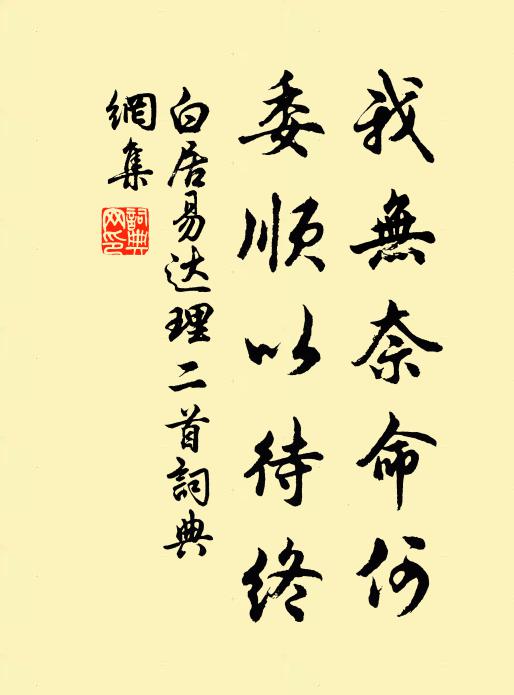 我無奈命何
委順以待终
白居易达理二首詞典
網集
詞典
网印